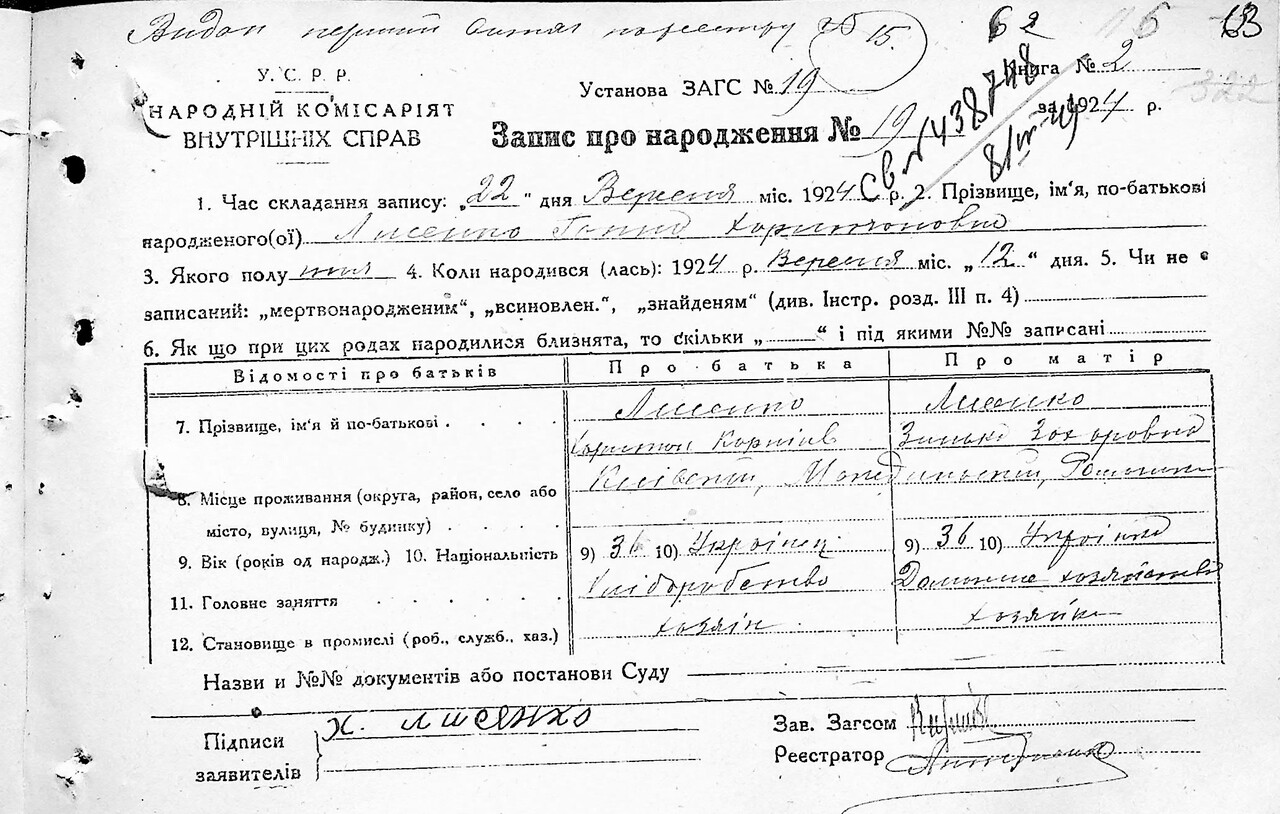 Видан перший витяг по реєстру № 15.
62 15 63
У. С. Р. Р.
НАРОДНІЙ КОМІСАРІЯТ
ВНУТРІШНІХ СПРАВ
322
Установа ЗАГС № 19 Книга № 2
за 1924 р.
Запис про народження № 19
Св № 438748
1. Час складання запису: „22" дня Вересня міс. 1924 р. 2. Прізвище, ім'я, по-батькові
народженого(ої) Лисенко Ганна Харитоновна
3. Якого полу жін 4. Коли народився (лась): 1924 р. Вересня міс. „12" дня. 5. Чи не є
записаний: „мертвонародженим", „всиновлен.", „знайденям" (див. Інстр. розд. III п. 4)
6. Як що при цих родах народилися близнята, то скільки „ " і під якими №№ записані
Відомості про батьків Про батька Про матір
7. Прізвище, ім'я й по-батькові Лисенко Лисенко
Харитон Корніів Зинька Захаровна
8. Місце проживання (округа, район, село або Київський,
місто, вулиця, № будинку)
9. Вік (років од народж.) 10. Національність 9) 36 10) Украінец 9) 36 10) Украінка
11. Головне заняття Хліборобство Домашнє хозяйство
12. Становище в промислі (роб., служб., хаз.) хозяін хозяйка
Назви и №№ документів або постанови Суду
Підписи Х. Лисенко
заявителів
Зав. Загсом
Реєстратор